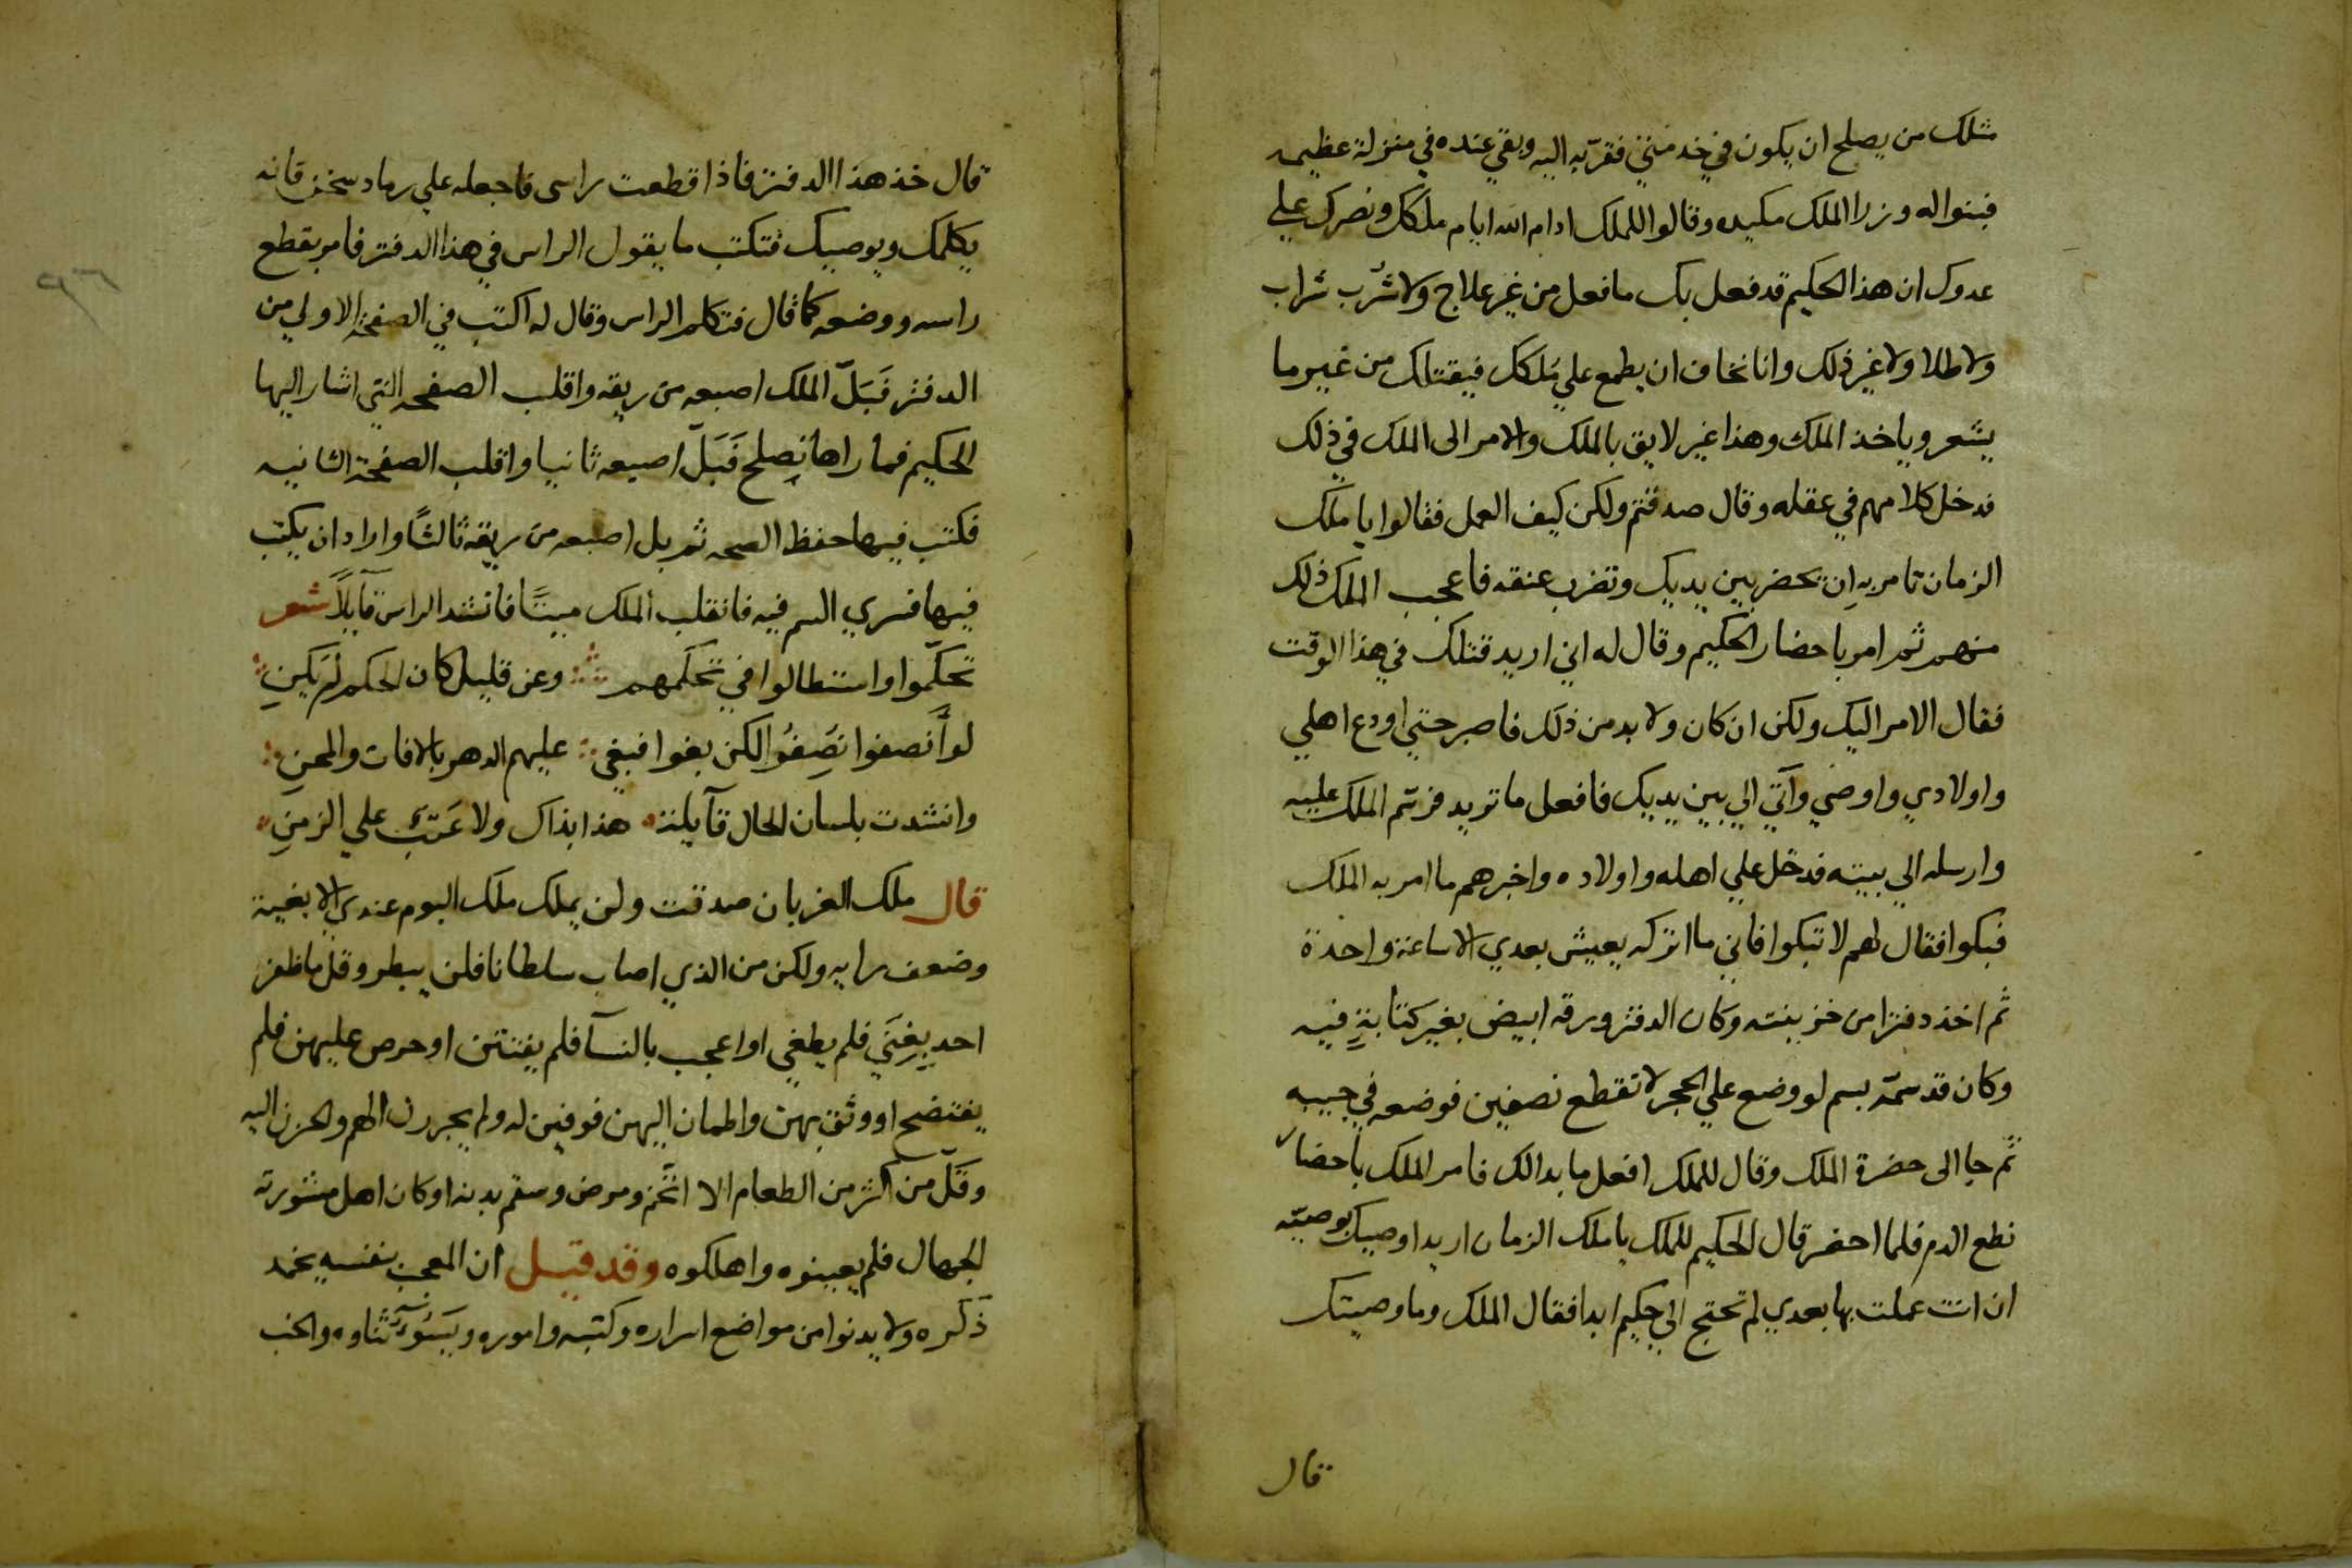 مثلك من يصلح ان يكون في خدمتي فقربه اليه وبقي عنده في منزلة عظيمه
فبنوا له وزرا الملك مكيده وقالوا للملك ادام الله ايام ملكك ونصرك علي
عدوك ان هذا الحكيم قد فعل بك ما فعل من غير علاج ولا شُرب شراب
ولا طلا ولا غير ذلك وانا نخاف ان يطمع علي مُلكك فيقتلك من غير ما
يشعر وياخذ الملك وهذا غير لايق بالملك والامر الى الملك في ذلك
فدخل كلامهم في عقله وقال صدقتم ولكن كيف العمل فقالوا يا ملك
الزمان تامر به ان يحضر بين يديك وتضرب عنقه فاعجب الملك ذلك
منهم ثم امر باحضار الحكيم وقال له اني اريد قتلك في هذا الوقت
فقال الامر اليك ولكن ان كان ولا بد من ذلك فاصبر حتي اودع اهلي
واولادي واوصي وآتي الي بين يديك فافعل ما تريد فرسم الملك عليه
وارسله الي بيته فدخل علي اهله واولاده واخبرهم ما امر به الملك
فبكوا فقال لهم لا تبكوا فاني ما اتركه يعيش بعدي الا ساعة واحدة
ثم اخذ دفترا من خزينته وكان الدفتر ورقه ابيض بغير كتابةٍ فيه
وكان قد سمّه بسم لو وضع علي الحجر لانقطع نصفين فوضعه في جيبه
ثم جا الى حضرة الملك وقال للملك افعل ما بدالك فامر الملك باحضار
نطع الدم فلما احضر قال الحكيم للملك يا ملك الزمان اريد اوصيك بوصيّه
ان انت عملت بها بعدي لم تحتج الي حكيم ابدا فقال الملك وما وصيتك
قال
قال خذ هذا الدفتر فاذا قطعت راسى فاجعله علي رماد سخن فانه
يكلمك ويوصيك فتكتب ما يقول الراس في هذا الدفتر فامر بقطع
راسه ووضعه كما قال فتكلم الراس وقال له اكتب في الصفحة الاولي من
الدفتر فَبَلّ الملك اصبعه من ريقه واقلب الصفحه التي اشار اليها
الحكيم فما راها تصلح فَبَلّ اصبعه ثانيا واقلب الصفحة الثانيه
فكتب فيها حفظ الصحه ثم بل اصبعه من ريقه ثالثًا واراد ان يكتب
فيها فسري السم فيه فانقلب الملك ميتًا فانشد الراس قآيلًا شعر
تحكّموا واستطالوا في تحكمهم وعن قليل كان الحكم لم يكنِ
لو أَنصفوا نُصِفُوا لكن بغوا فبغي عليهم الدهر بالافات والمحنِ
وانشدت بلسان الحال قآيلة هذا بذاك ولا عَتَبٌ علي الزمنِ
قال ملك الغربان صدقت ولن يملك ملك البوم عندي الا بغيه
وضعف رايه ولكن من الذي اصاب سلطانا فلن يبطر وقل ما ظفر
احد بِغِنَي فلم يطغي او اعجب بالنسآ فلم يفتتن او حرص عليهن فلم
يفتضح او وثق بهن واطمان اليهن فوفين له ولم يجررن الهم والحزن اليه
وقَلّ من اكثر من الطعام الا اتّخم ومرض وسقم بدنه او كان اهل مشورته
الجهال فلم يعينوه واهلكوه وقد قيل ان المعجب بنفسه يخمد
ذكره ولا يدنوا من مواضع اسراره وكتبه واموره ويَسُوءُ ثناوه والخب